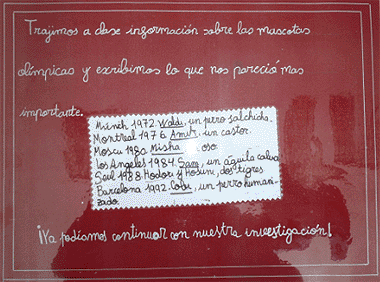 Trajimos a clase información sobre las mascotas
olímpicas y escribimos lo que nos pareció mas
importante.
Múnich 1972 Waldi, un perro salchicha.
Montreal 1976 Amik, un castor.
Moscu 1980 Misha oso.
Los Angeles 1984. Sam, un águila calva
Seul 1988 Hodori y Hosuni, dos tigres
Barcelona 1992 Cobi, un perro humani-
zado.
¡Ya podíamos continuar con nuestra investigación!